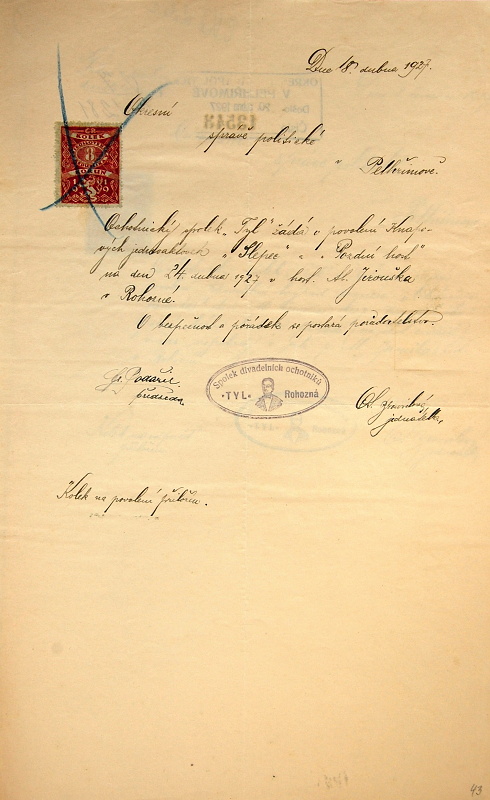 Dne 18. dubna 1927.
Okresní
správě politické
v
Pelhřimově.
ČR
KOLEK
8
KORUN
Ochotnický spolek „Tyl“ žádá o povolení
jednoaktovek „Slepec“ a „Pozdní host“
na den 24. dubna 1927 v host. Al. Jirouška
v Rohozné.
O bezpečnost a pořádek se postará pořadatelstvo.
předseda
Spolek divadelních ochotníků
·TYL· Rohozná
jednatel.
Kolek na povolení přiložen.
43